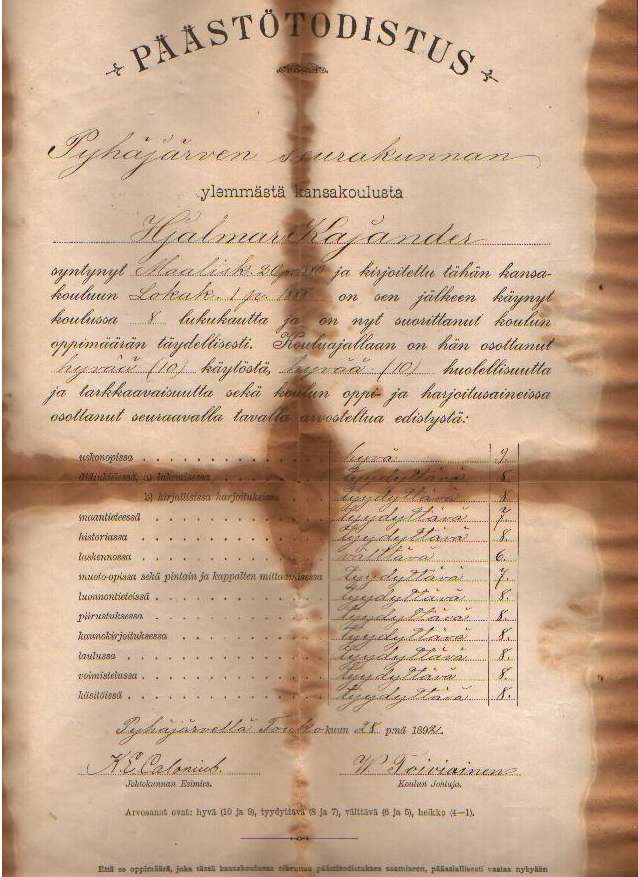 PÄÄSTÖTODISTUS
Pyhäjärven seurakunnan
ylemmästä kansakoulusta
Hjalmar Kajander
syntynyt Maalisk. 20 p. ja kirjoitettu tähän kansa-
kouluun Lokak. 1 p. 1888 on sen jälkeen käynyt
koulussa 8 lukukautta ja on nyt suorittanut koulun
oppimäärän täydellisesti. Kouluajallaan on hän osottanut
hyvää (10) käytöstä, hyvää (10) huolellisuutta
ja tarkkaavaisuutta sekä koulun oppi- ja harjoitusaineissa
osottanut seuraavalla tavalla arvosteltua edistystä:
uskonopissa hyvä 9.
äidinkielessä, a) lukemisessa tyydyttävä 8.
b) kirjallisissa harjoituksissa tyydyttävä 8.
maantieteessä tyydyttävä 7.
historiassa tyydyttävä 8.
laskennossa välttävä 6.
muoto-opissa sekä pintain ja kappalten mittaamisessa tyydyttävä 7.
luonnontieteissä tyydyttävä 8.
piirustuksessa tyydyttävä 8.
kaunokirjoituksessa tyydyttävä 8.
laulussa tyydyttävä 8.
voimistelussa tyydyttävä 8.
käsitöissä tyydyttävä 8.
Pyhäjärvellä Touko-kuun 28 p:nä 1892.
K. E. Calonius. W. Toiviainen
Johtokunnan Esimies. Koulun Johtaja.
Arvosanat ovat: hyvä (10 ja 9), tyydyttävä (8 ja 7), välttävä (6 ja 5), heikko (4—1).
Että se oppimäärä, joka tässä kansakoulussa päästötodistuksen saamiseen, pääasiallisesti vastaa nykyään